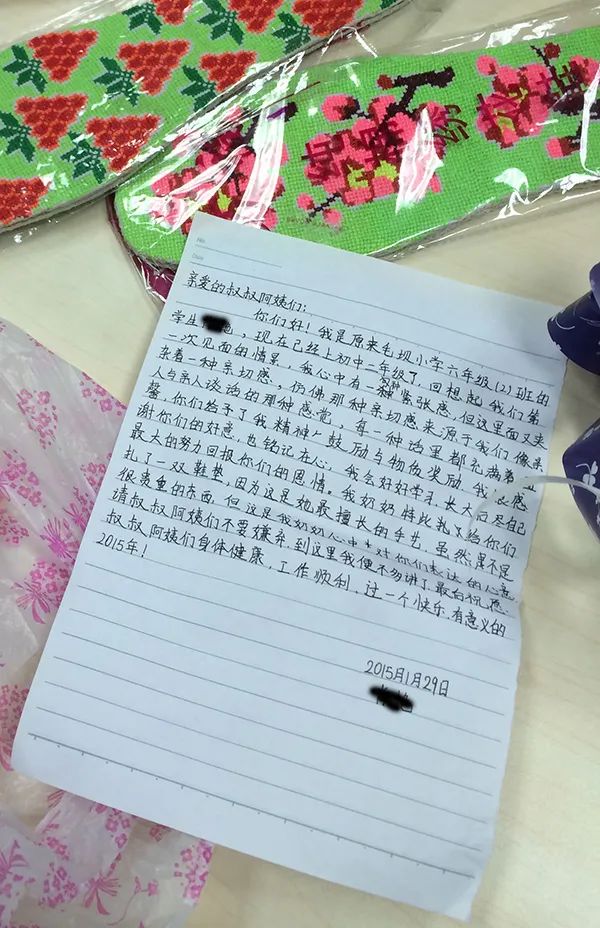 No.
Date
亲爱的叔叔阿姨们:
你们好！我是原来毛坝小学六年级(2)班的
学生，现在已经上初中二年级了，回想起我们第
一次见面的情景，我心中有一种紧张感，但这里面又夹
杂着一种亲切感，仿佛那种亲切感来源于我们像亲
人与亲人谈话的那种感觉，每一种话里都充满
馨，你们给予了我精神上鼓励与物质奖励，我很感
谢你们的好意，也铭记在心，我会好好学习，长大后尽自己
最大的努力回报你们的恩情。我奶奶特此扎了给你们
扎了一双鞋垫，因为这是她最擅长的手艺，虽然算不是
很贵重的东西，但这是我奶奶心中对你们表达的心意
请叔叔阿姨们不要嫌弃，到这里我便不多讲了，最后祝愿
叔叔阿姨们身体健康，工作顺利，过一个快乐，有意义的
2015年！
2015月1月29日